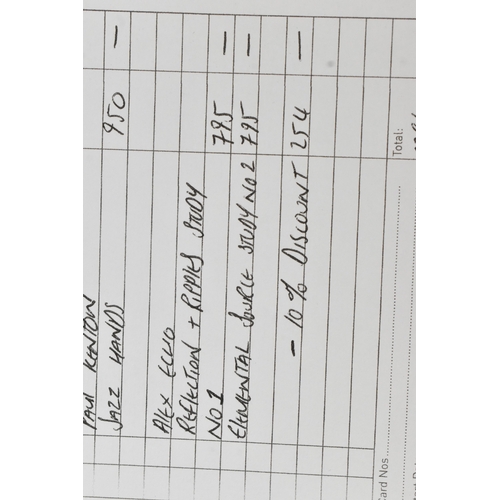 PAUL KENTON
JAZZ HANDS 950 —
ALEX ECHO
REFLECTION + RIPPLES STUDY
NO 1 795 —
ELEMENTAL SOURCE STUDY NO 2 795 —
- 10% DISCOUNT 254 —
Total:
ard Nos